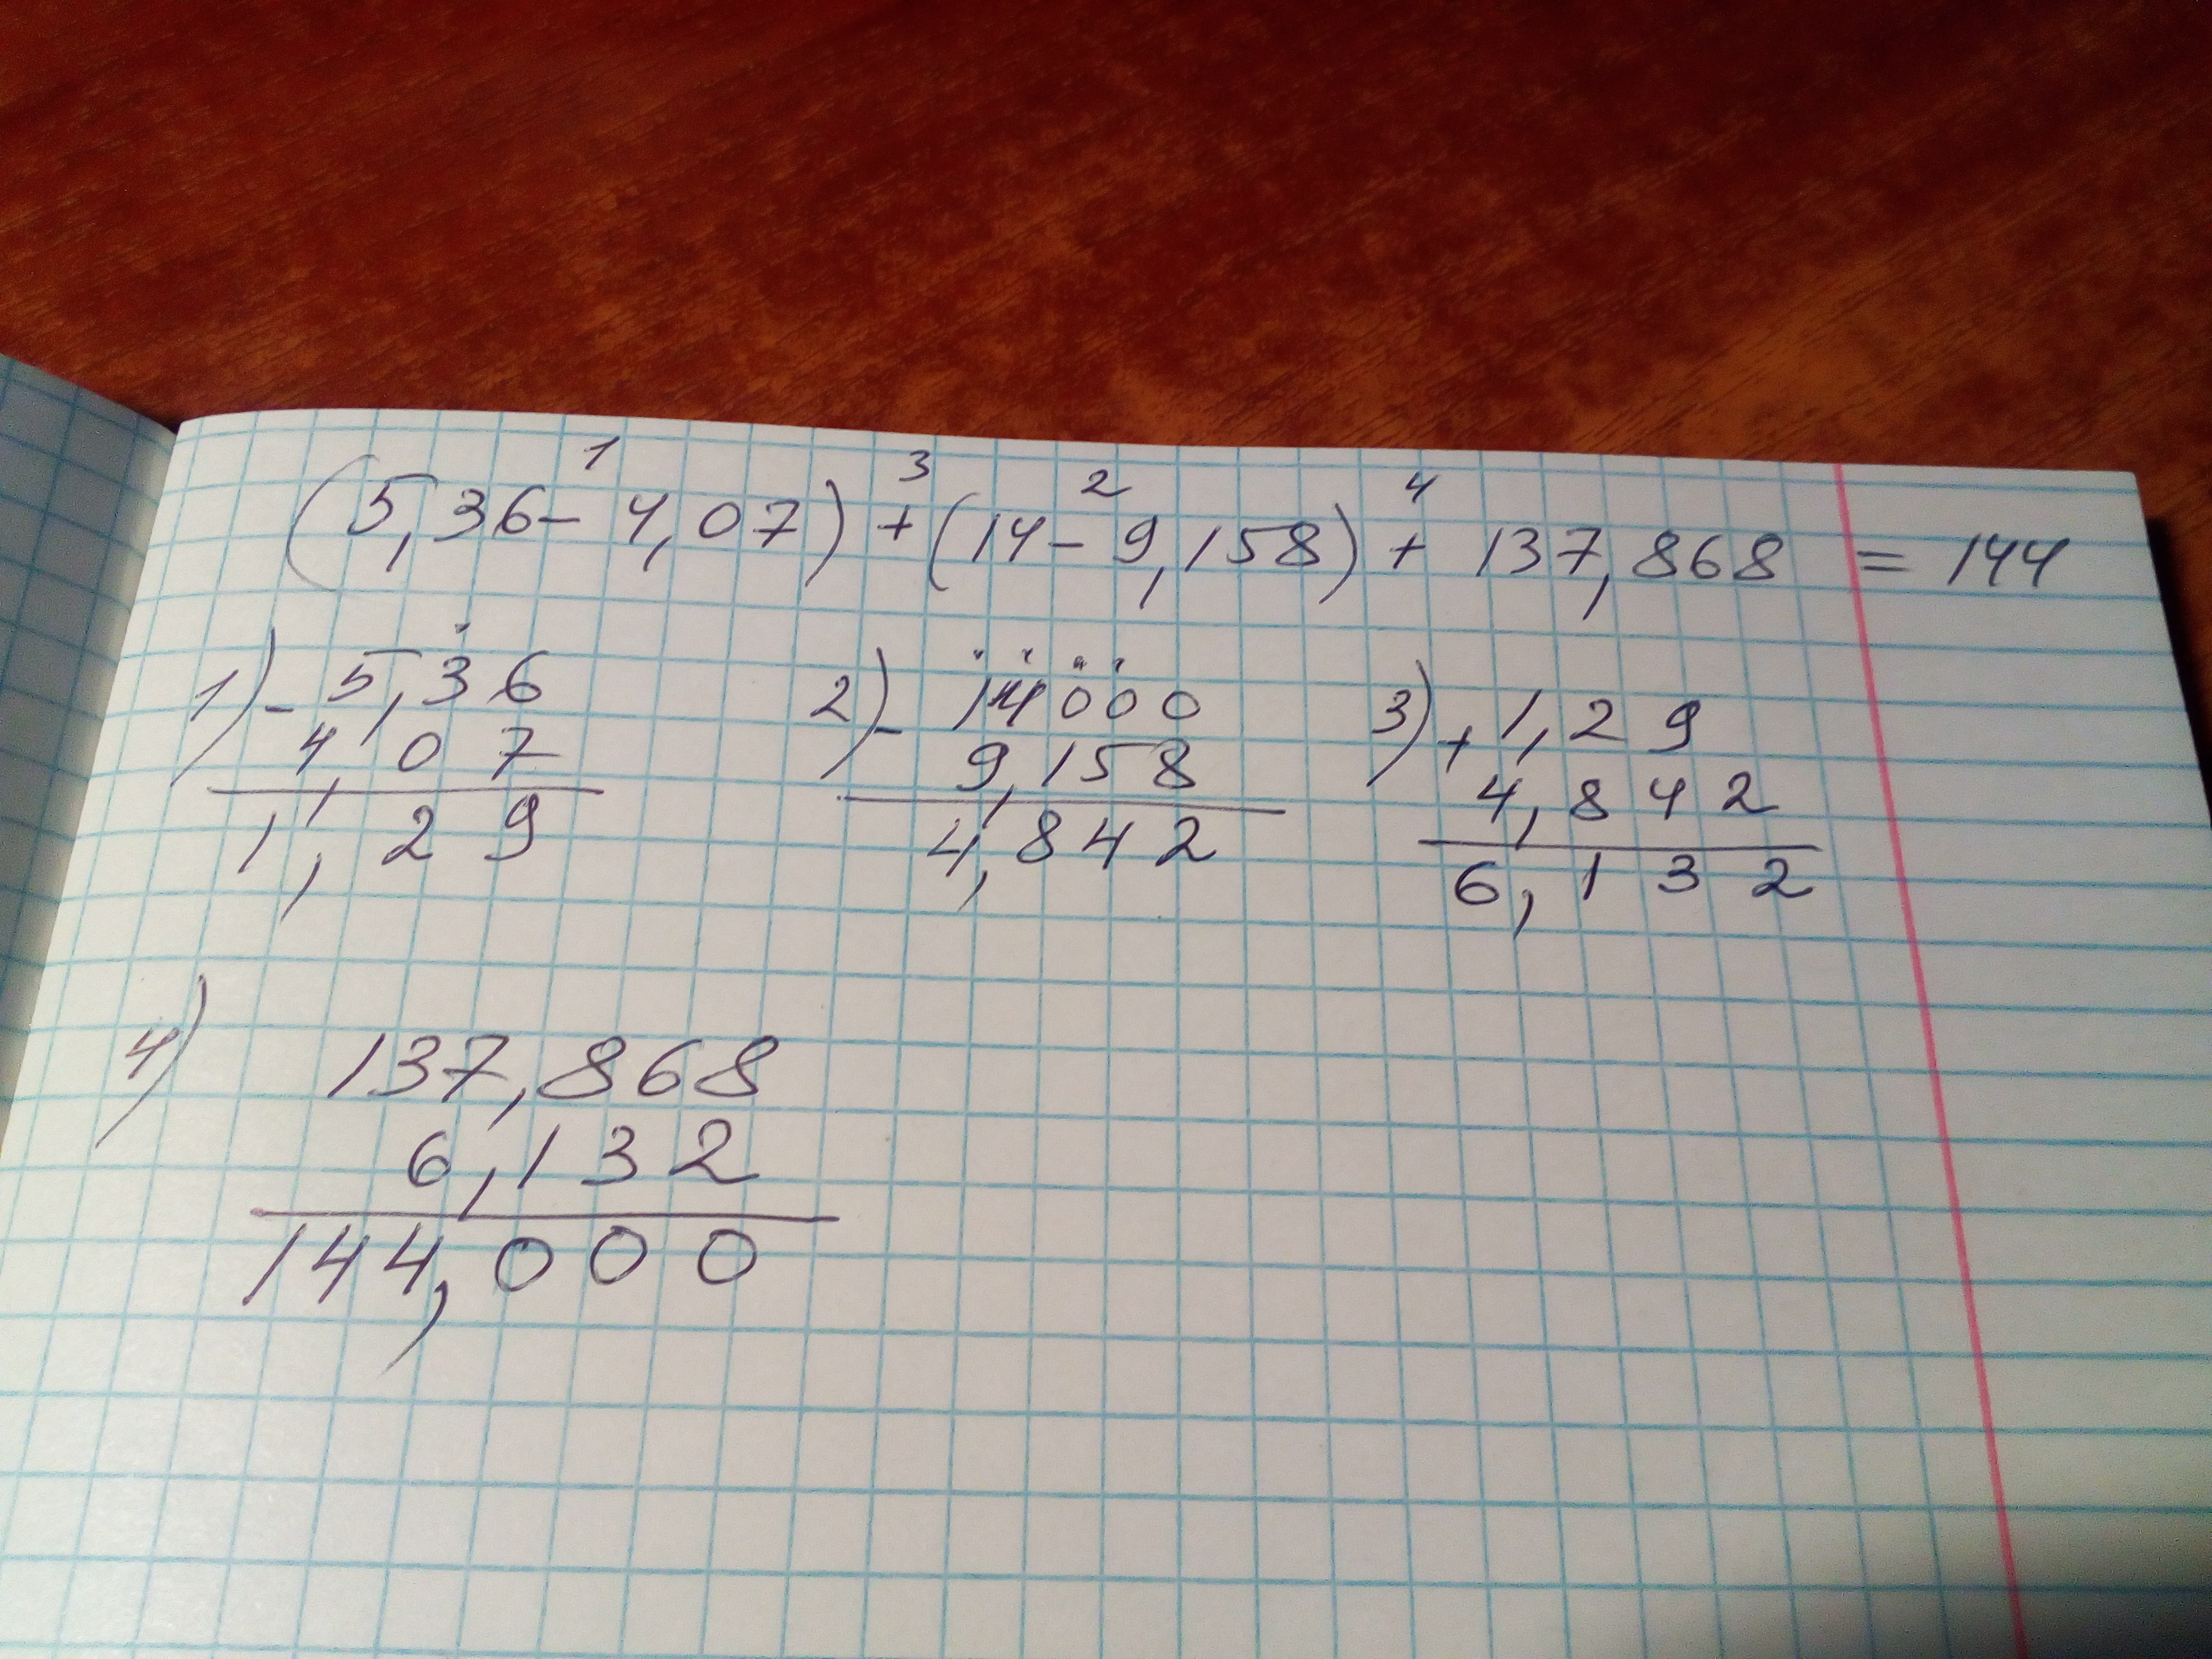 1 3 2 4
(5,36-4,07)+(14-9,158)+ 137,868 = 144
1) - 5,36
4,07
1,29
2) - 14000
9,158
4,842
3) + 1,29
4,842
6,132
4) 137,868
6,132
144,000